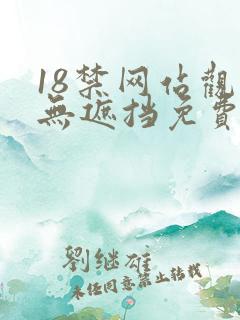 18禁网佔觀
無遮挡免費
劉继雄
未经同意禁止转载